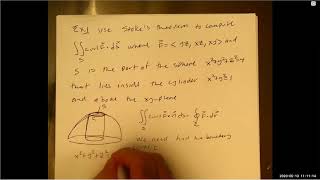 Ex1 Use Stoke's theorem to compute
∬ curl F⃗ · dS⃗ where F⃗ = < yz, xz, xy > and
S
S is the part of the sphere x²+y²+z²=4
that lies inside the cylinder x²+y²=1
and above the xy-plane
S
∬ curl F⃗ · n⃗ dS = ∮ F⃗ · dr⃗
S
We need find the boundary
x²+y²+z²